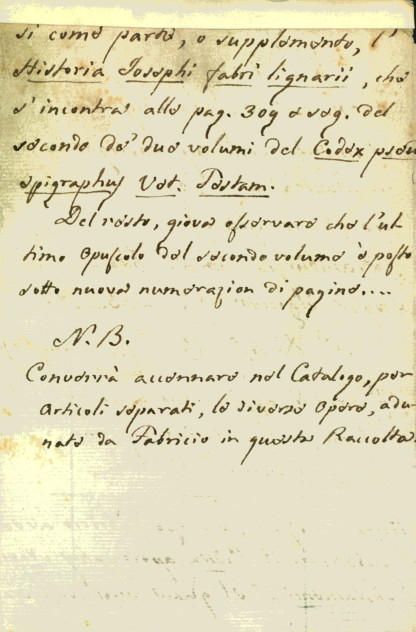 si come parte, o supplemento, l'
Historia Josephi fabri lignarii, che
s'incontra alle pag. 309 e seg. del
secondo de' due volumi del Codex pseu
epigraphus Vet. Testam.
Del resto, giova osservare che l'ul
timo Opuscolo del secondo volume è posto
sotto nuova numerazion di pagine....
N. B.
Converrà accennare nel Catalogo, per
articoli separati, le diverse Opere, adu
nate da Fabricio in questa Raccolta.